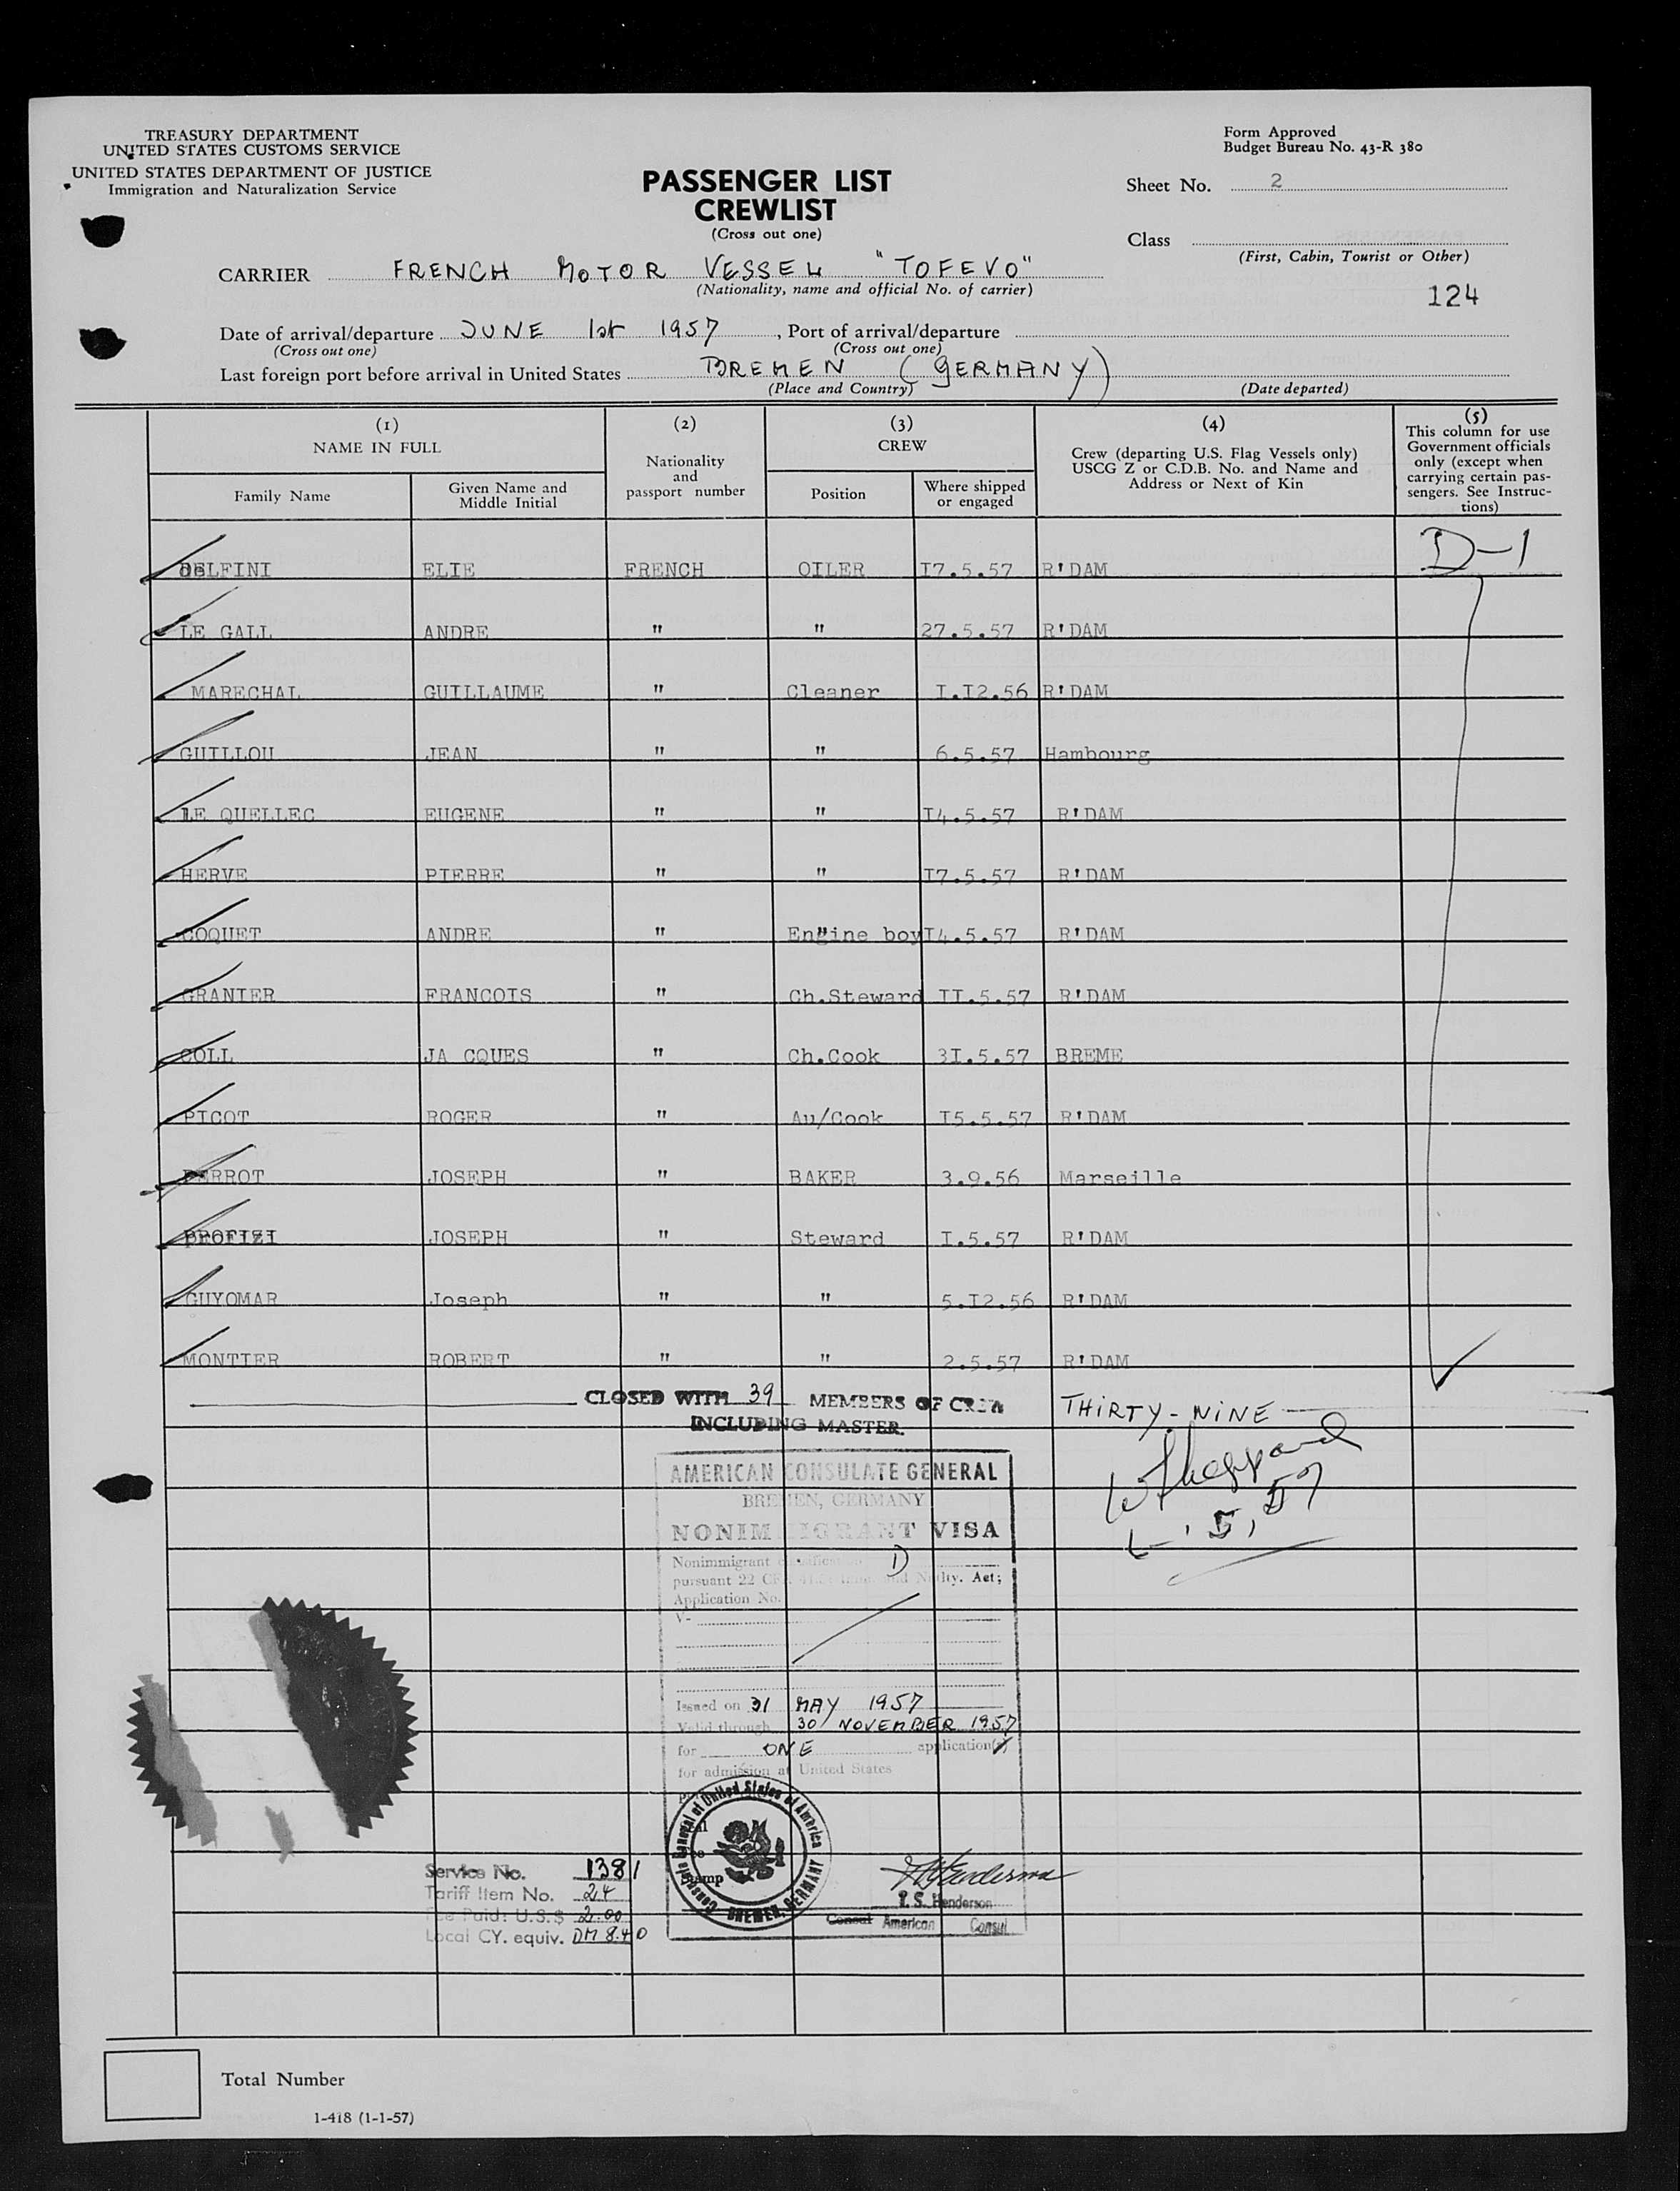 TREASURY DEPARTMENT
UNITED STATES CUSTOMS SERVICE
UNITED STATES DEPARTMENT OF JUSTICE
Immigration and Naturalization Service
Form Approved
Budget Bureau No. 43-R 380
PASSENGER LIST
CREWLIST
(Cross out one)
Sheet No. 2
Class
(First, Cabin, Tourist or Other)
CARRIER FRENCH MOTOR VESSEL "TOFEVO"
(Nationality, name and official No. of carrier)
124
Date of arrival/departure JUNE 1st 1957, Port of arrival/departure
(Cross out one) (Cross out one)
Last foreign port before arrival in United States BREMEN (GERMANY)
(Place and Country) (Date departed)
(1) NAME IN FULL
Family Name
Given Name and Middle Initial
(2) Nationality and passport number
(3) CREW
Position
Where shipped or engaged
(4) Crew (departing U.S. Flag Vessels only) USCG Z or C.D.B. No. and Name and Address or Next of Kin
(5) This column for use Government officials only (except when carrying certain passengers. See Instructions)
D-1
DELFINI ELIE FRENCH OILER I7.5.57 R'DAM
LE GALL ANDRE " " 27.5.57 R'DAM
MARECHAL GUILLAUME " Cleaner I.I2.56 R'DAM
GUILLOU JEAN " " 6.5.57 Hambourg
LE QUELLEC EUGENE " " I4.5.57 R'DAM
HERVE PIERRE " " I7.5.57 R'DAM
COQUET ANDRE " Engine boy I4.5.57 R'DAM
GRANIER FRANCOIS " Ch.Steward II.5.57 R'DAM
COLL JA CQUES " Ch.Cook 3I.5.57 BREME
PICOT ROGER " Au/Cook I5.5.57 R'DAM
PERROT JOSEPH " BAKER 3.9.56 Marseille
PROFIZI JOSEPH " Steward I.5.57 R'DAM
GUYOMAR Joseph " " 5.I2.56 R'DAM
MONTIER ROBERT " " 2.5.57 R'DAM
CLOSED WITH 39 MEMBERS OF CREW THIRTY-NINE
INCLUDING MASTER.
AMERICAN CONSULATE GENERAL
BREMEN, GERMANY
NONIMMIGRANT VISA
Nonimmigrant classification D
pursuant 22 CFR and Natlty. Act;
Application No.
V-
Issued on 31 MAY 1957
Valid through 30 NOVEMBER 1957
for ONE application(s)
for admission at United States
Consulate General of United States of America
BREMEN, GERMANY
Service No. 1381
Tariff Item No. 24
Fee Paid: U.S.$ 2.00
Local CY. equiv. DM 8.40
T. S. Henderson
Consul American Consul
Total Number
1-418 (1-1-57)